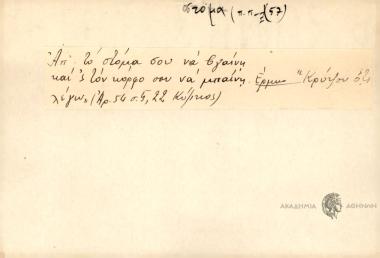 στόμα (π.π. 57)
Απ' τὸ στόμα σου νὰ βγαίνῃ
καὶ 'ς τὸν κόρφο σου νὰ μπαίνῃ. Ἑρμην. "Κρύψου ὅτι
λέγω" (Ἀρ. 56 σ. 5, 22 Κύζικος)
ΑΚΑΔΗΜΙΑ ΑΘΗΝΩΝ